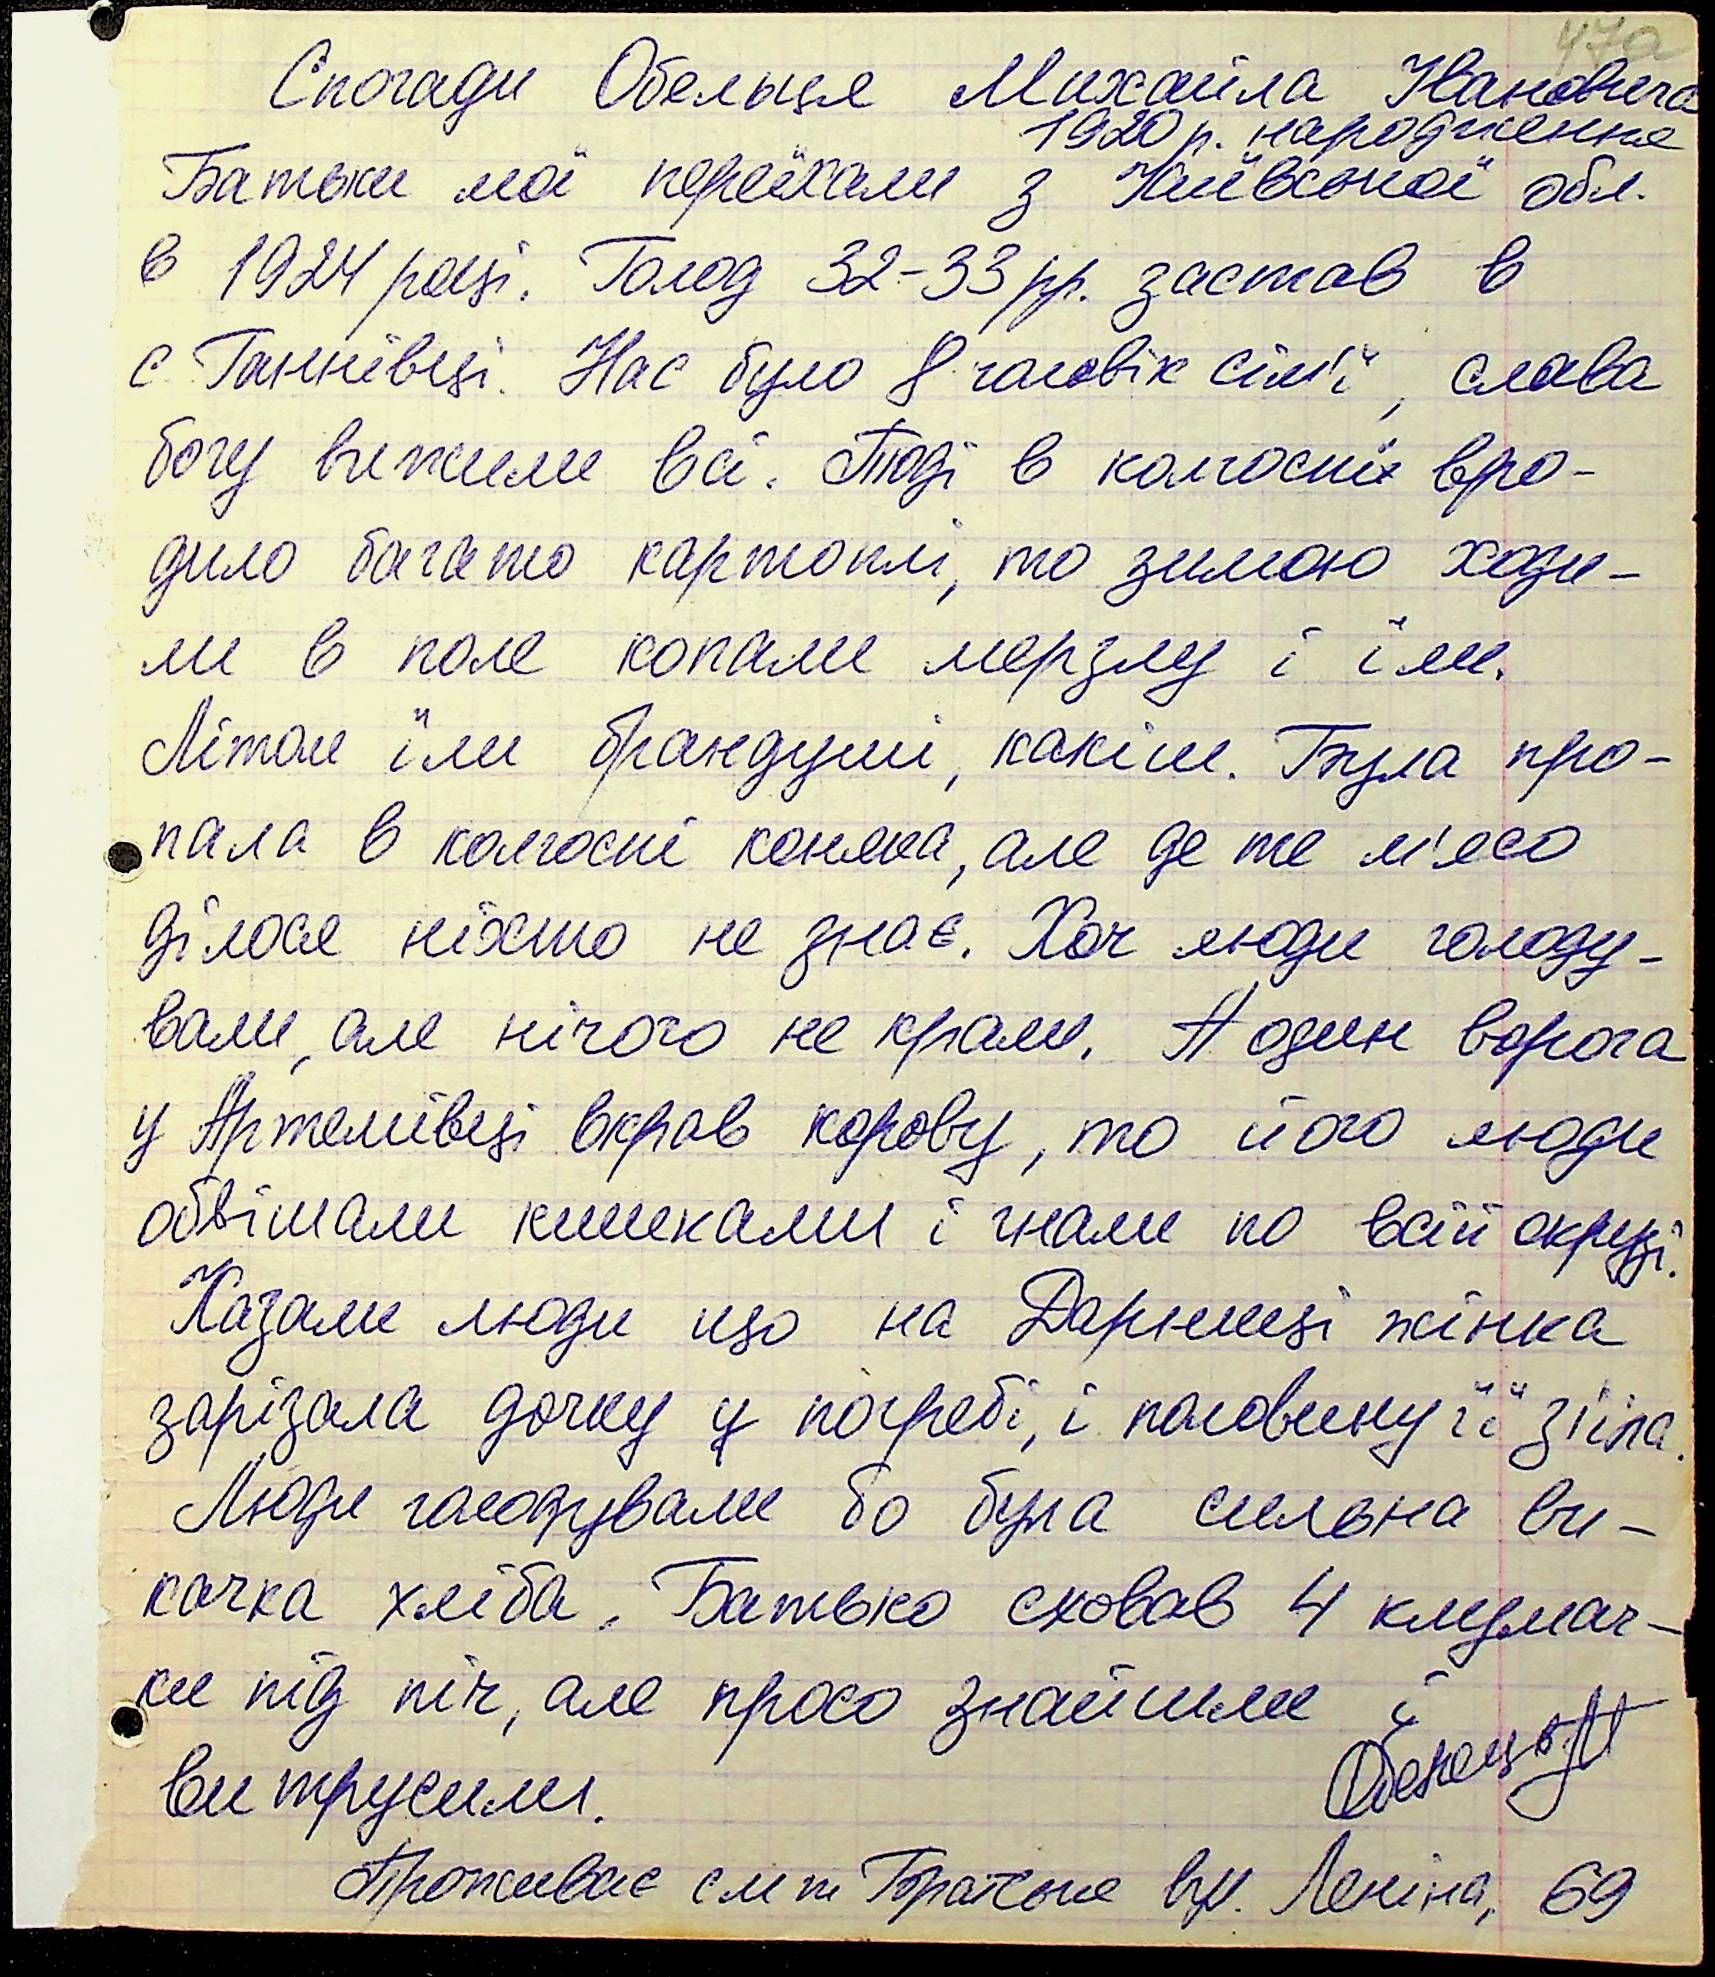 47а
Спогади Обельця Михайла Івановича
1920 р. народження
Батьки мої переїхали з Київської обл.
в 1924 році. Голод 32-33 рр. застав в
с Ганнівці. Нас було 8 чоловік сім'ї, слава
богу вижили всі. Тоді в колгоспі вро-
дило багато картоплі, то зимою ходи-
ли в поле копали мерзлу і їли.
Літом їли брандуші, какіш. Була про-
пала в колгоспі коняка, але де те м'ясо
ділося ніхто не знає. Хоч люди голоду-
вали, але нічого не крали. А один ворога
у Артемівці вкрав корову, то його люди
обвішали кишками і гнали по всій окрузі.
Казали люди що на Дарниці жінка
зарізала дочку у погребі, і половину її зїїла.
Люди голодували бо була сильна ви-
качка хліба. Батько сховав 4 клумач-
ки під піч, але просо знайшли і
витрусили.
Проживає смт Братське вул. Леніна, 69